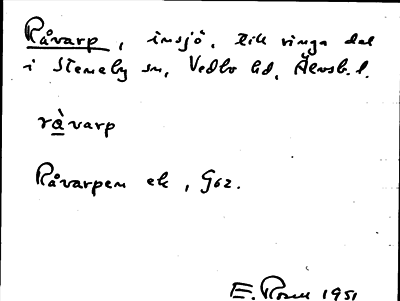 Råvarp, insjö, till ringa del
i Steneby sn, Vedbo hd, Älvsb. l.
ràvarp
Råvarpen ek, G62.
E. Rosell 1951